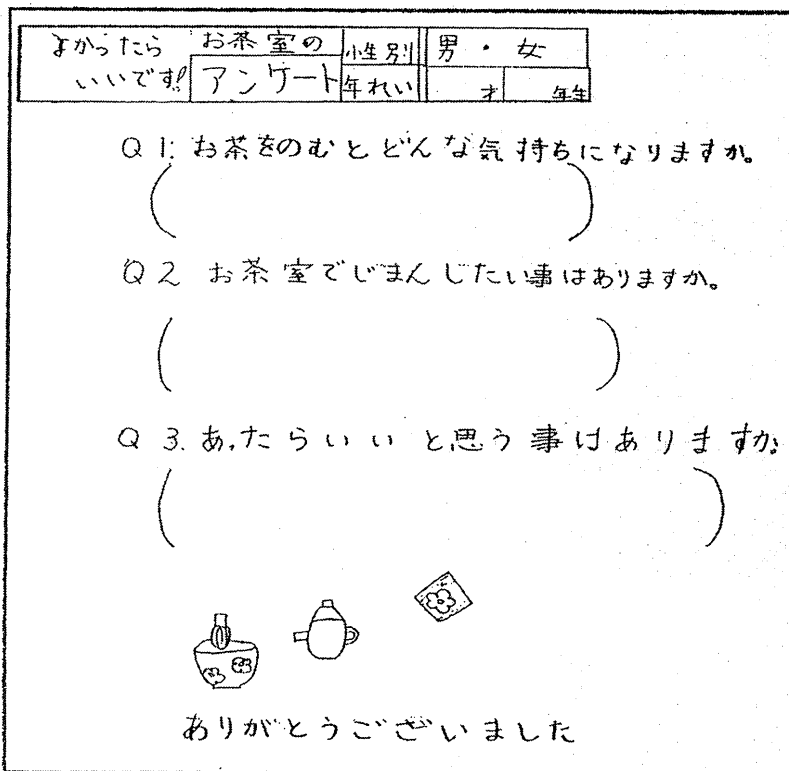 よかったら
いいです!
お茶室の
アンケート
性別
男・女
年れい
才
年生
Q1. お茶をのむとどんな気持ちになりますか。
(   )
Q2 お茶室でじまんしたい事はありますか。
(   )
Q3. あったらいいと思う事はありますか。
(   )
ありがとうございました